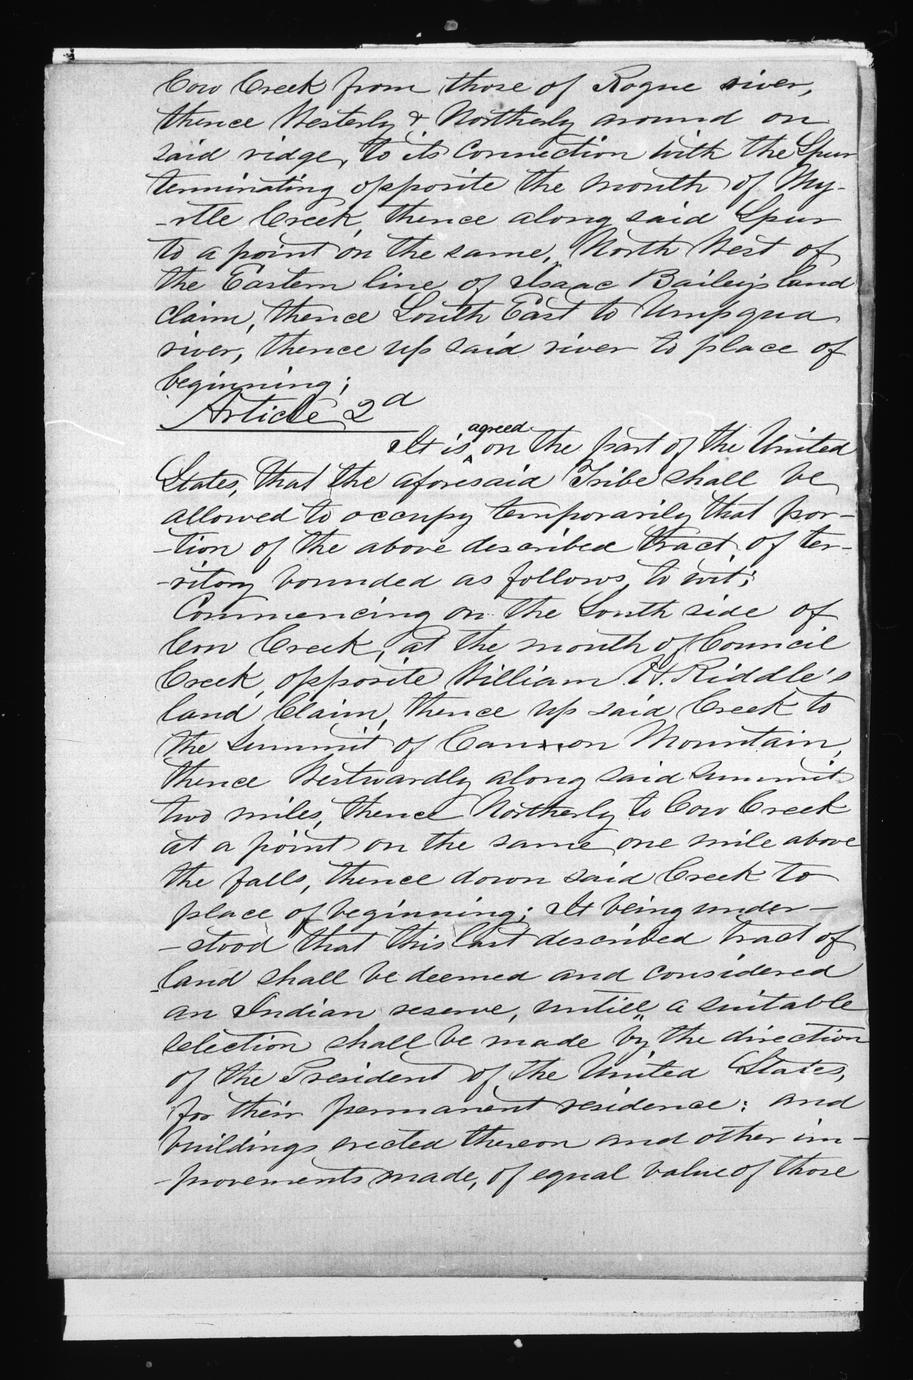 Cow Creek from those of Rogue river,
thence Westerly & Northerly around on
said ridge, to its connection with the Spur
terminating opposite the mouth of My-
-rtle Creek, thence along said Spur
to a point on the same, North West of
the Eastern line of Isaac Bailey's land
claim, thence South East to Umpqua
river, thence up said river to place of
beginning;
Article 2d
It is agreed on the part of the United
States, that the aforesaid Tribe shall be
allowed to occupy temporarily that por-
-tion of the above described tract, of ter-
-ritory bounded as follows, to wit;
Commencing on the South side of
Cow Creek, at the mouth of Council
Creek, opposite William H. Riddle's
land Claim, thence up said Creek to
the Summit of Canyon Mountain,
thence Westwardly along said Summit
two miles, thence Northerly to Cow Creek
at a point on the same one mile above
the falls, thence down said Creek to
place of beginning; It being under-
-stood that this last described tract of
land shall be deemed and considered
an Indian reserve, untill a suitable
selection shall be made by the direction
of the President of the United States,
for their permanent residence: and
buildings erected thereon and other im-
-provements made, of equal value of those